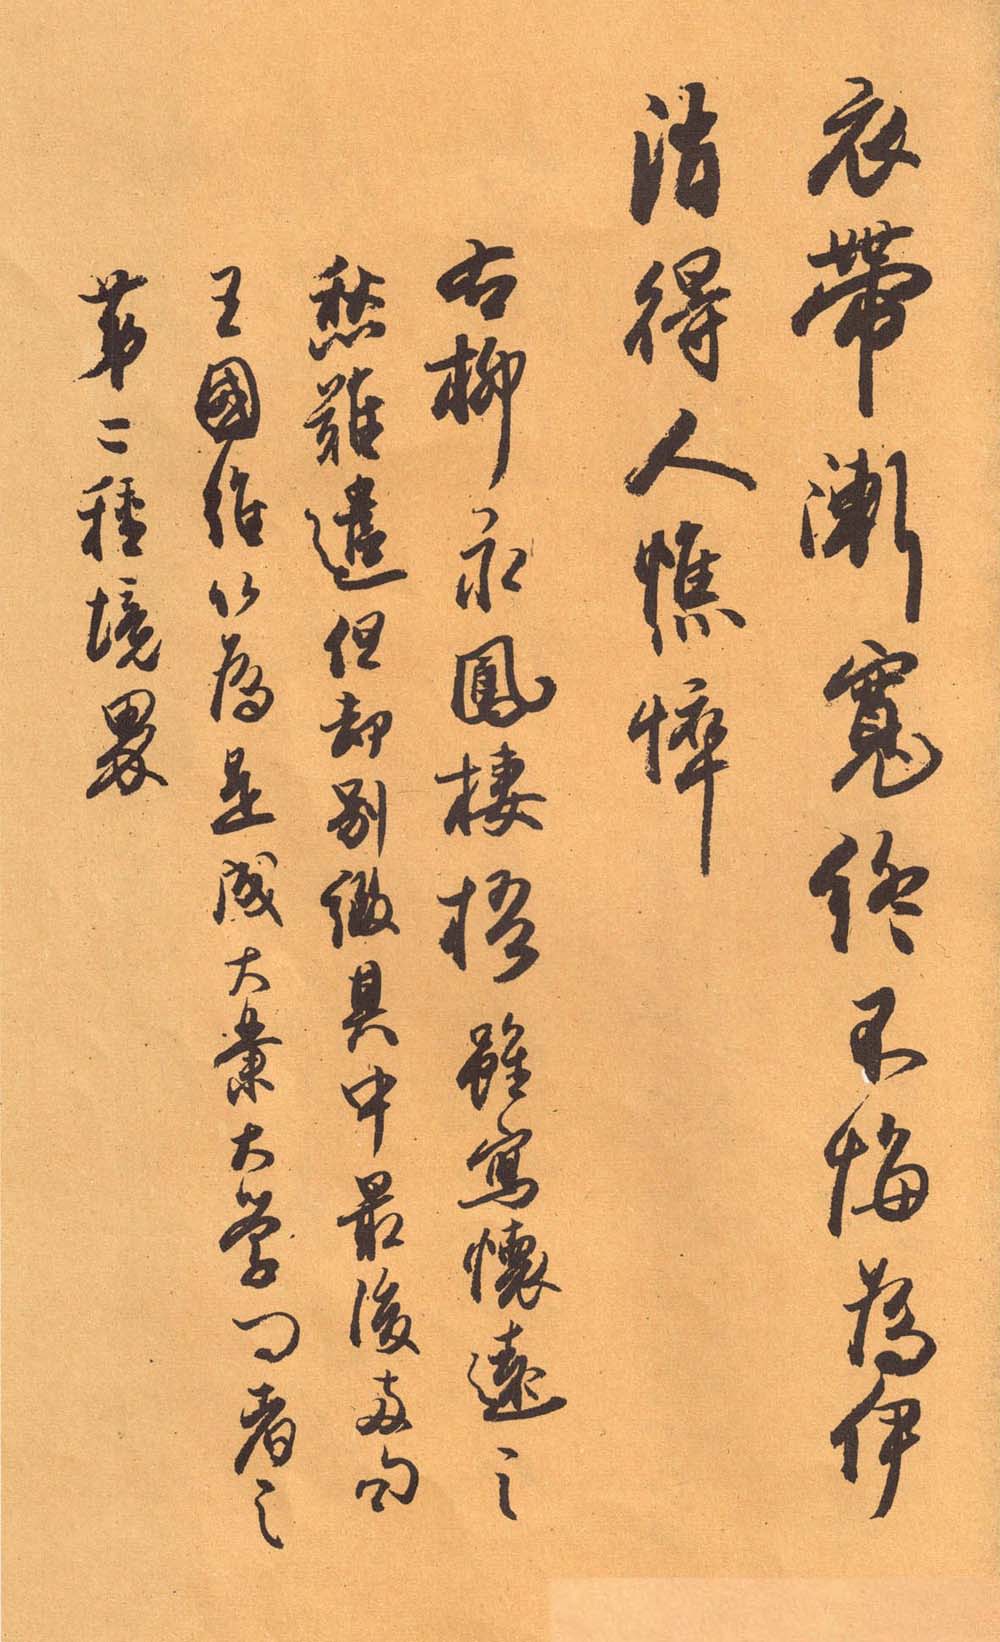 衣帶漸寬終不悔為伊
消得人憔悴
右柳永鳳棲梧雖寫懷遠之
愁難遣但卻別緻其中最後兩句
王國維以為是成大業大學问者之
第二種境界